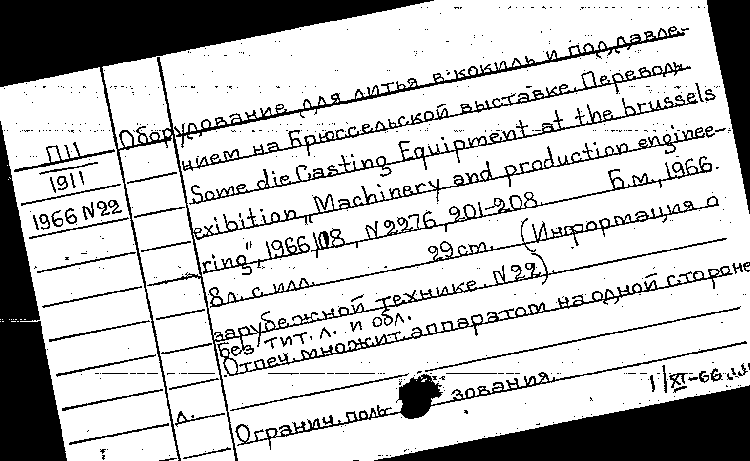 Оборудование для литья в кокиль и под давле-
нием на Брюссельской выставке. Переводы.
П11
1911
1966 N22
Some die Casting Equipment at the brussels
exibition „Machinery and production enginee-
ring", 1966, 108, N2276, 201-208. Б.м., 1966.
8л. с илл. 29cm. (Информация о
зарубежной технике. N22)
Без тит. л. и обл.
Отпеч. множит. аппаратом на одной стороне
л.
Огранич. поль зования.
1/XI-66